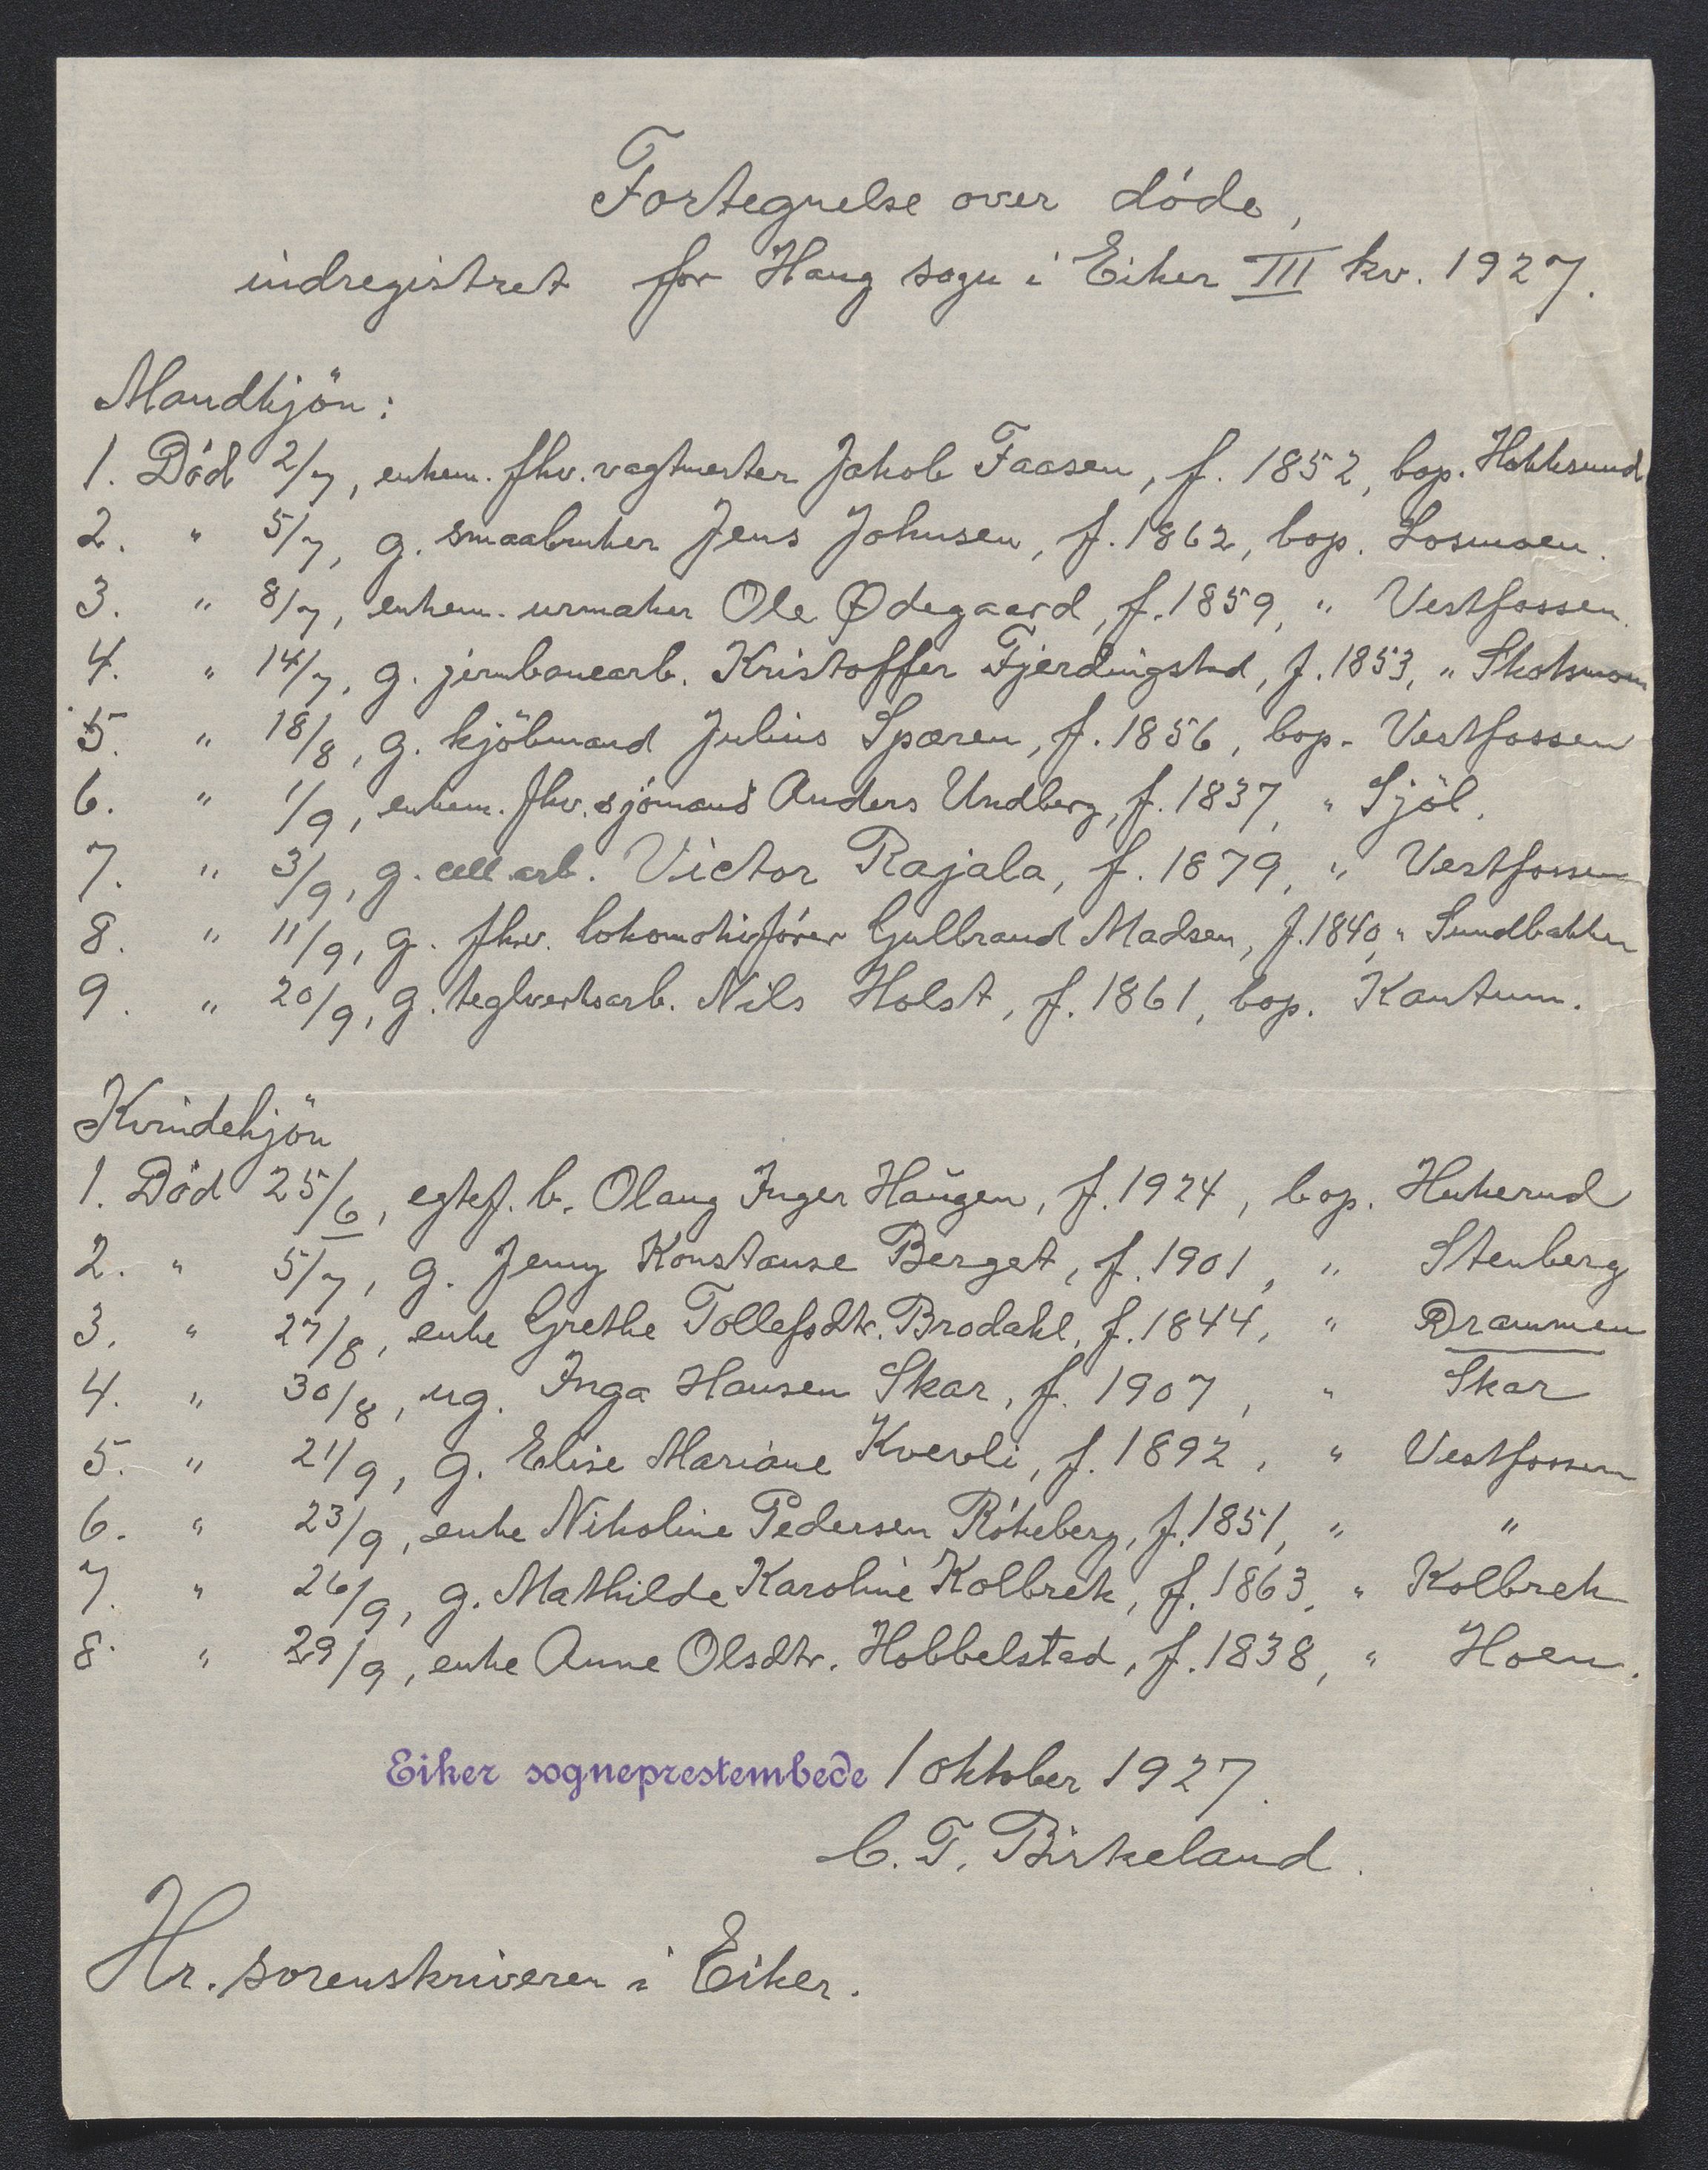 Fortegnelse over døde,
indregistret for Haug sogn i Eiker III kv. 1927.
Mandkjön:
1. Död 2/7, enkem. fhv. vagtmester Jakob Faasen, f. 1852, bop. Hokksund
2. " 5/7, g. smaabruker Jens Johnsen, f. 1862, bop. Losmoen.
3. " 8/7, enkem. urmaker Ole Ødegaard, f. 1859, " Vestfossen.
4. " 14/7, g. jernbanearb. Kristoffer Fjerdingstad, f. 1853, " Skotsmoen
5. " 18/8, g. kjöbmand Julius Spæren, f. 1856, bop. Vestfossen
6. " 1/9, enkem. fhv. sjömand Anders Undberg, f. 1837, " Sjöl.
7. " 3/9, g. cell.arb. Victor Rajala, f. 1879, " Vestfossen
8. " 11/9, g. fhv. lokomotivförer Gulbrand Madsen, f. 1840, " Sundbakken
9. " 20/9, g. teglverksarb. Nils Holst, f. 1861, bop. Kantum.
Kvindekjön
1. Död 25/6, egtef. b. Olaug Inger Haugen, f. 1924, bop. Hukerud
2. " 5/7, g. Jenny Konstanse Berget, f. 1901, " Stenberg
3. " 27/8, enke Grethe Tollefsdtr. Brodahl, f. 1844, " Drammen
4. " 30/8, ug. Inga Hansen Skar, f. 1907, " Skar
5. " 21/9, g. Elise Mariane Kverli, f. 1892, " Vestfossen
6. " 23/9, enke Nikoline Pedersen Rökeberg, f. 1851, " "
7. " 26/9, g. Mathilde Karoline Kolbrek, f. 1863, " Kolbrek
8. " 29/9, enke Anne Olsdtr. Hobbelstad, f. 1838, " Hoen.
Eiker sogneprestembede 1 oktober 1927.
C. T. Birkeland.
Hr. sorenskriveren i Eiker.